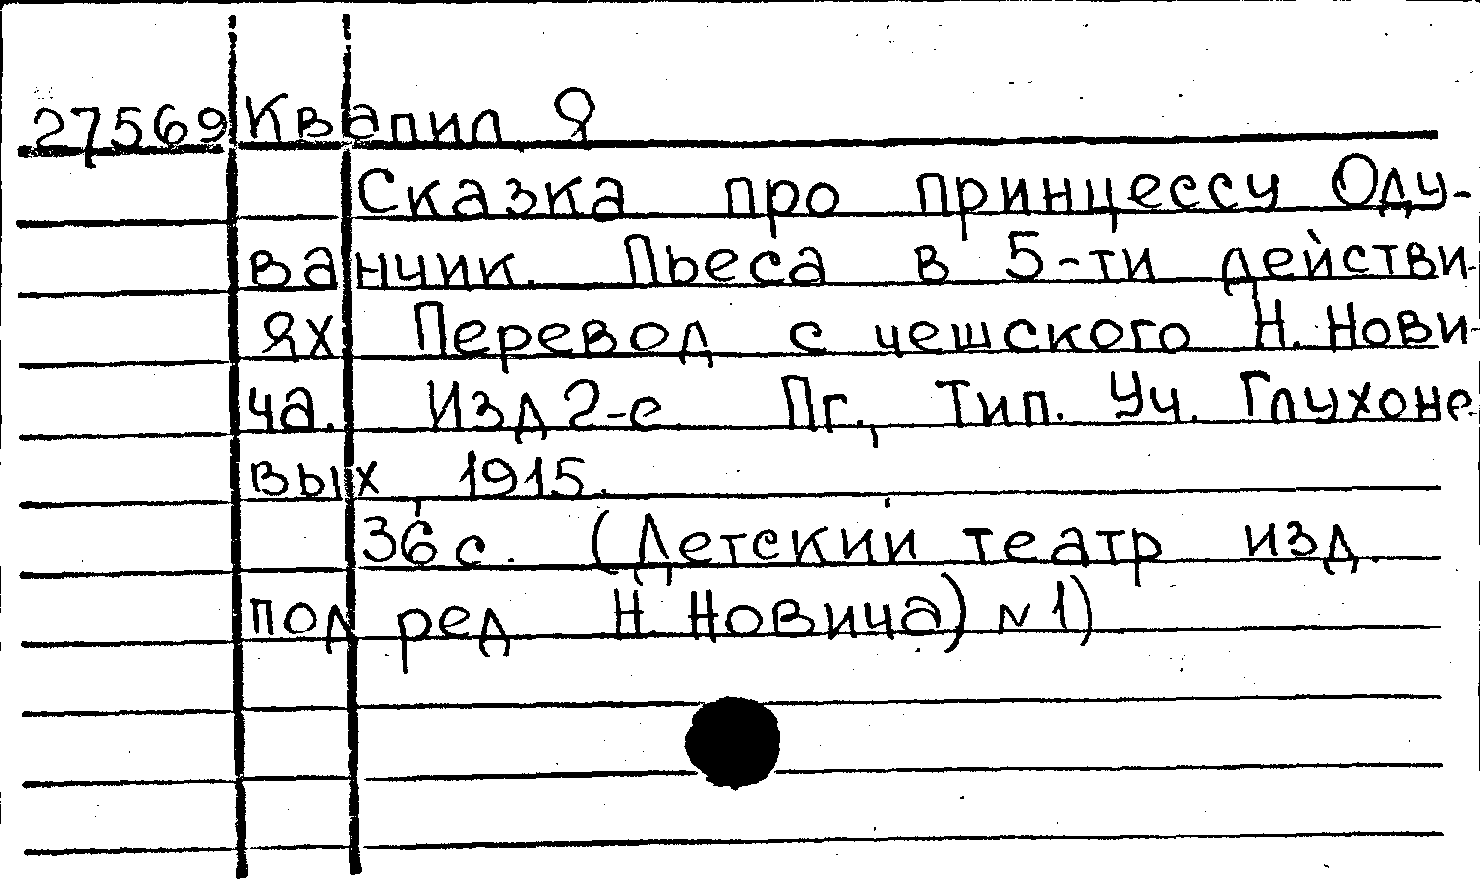 27569 Квапил Я
Сказка про принцессу Оду-
ванчик. Пьеса в 5-ти действи-
ях Перевод с чешского Н. Нови-
ча. Изд 2-е Пг., Тип. Уч. Глухоне
вых, 1915.
36 с. (Детский театр изд.
под ред Н. Новича) N 1)